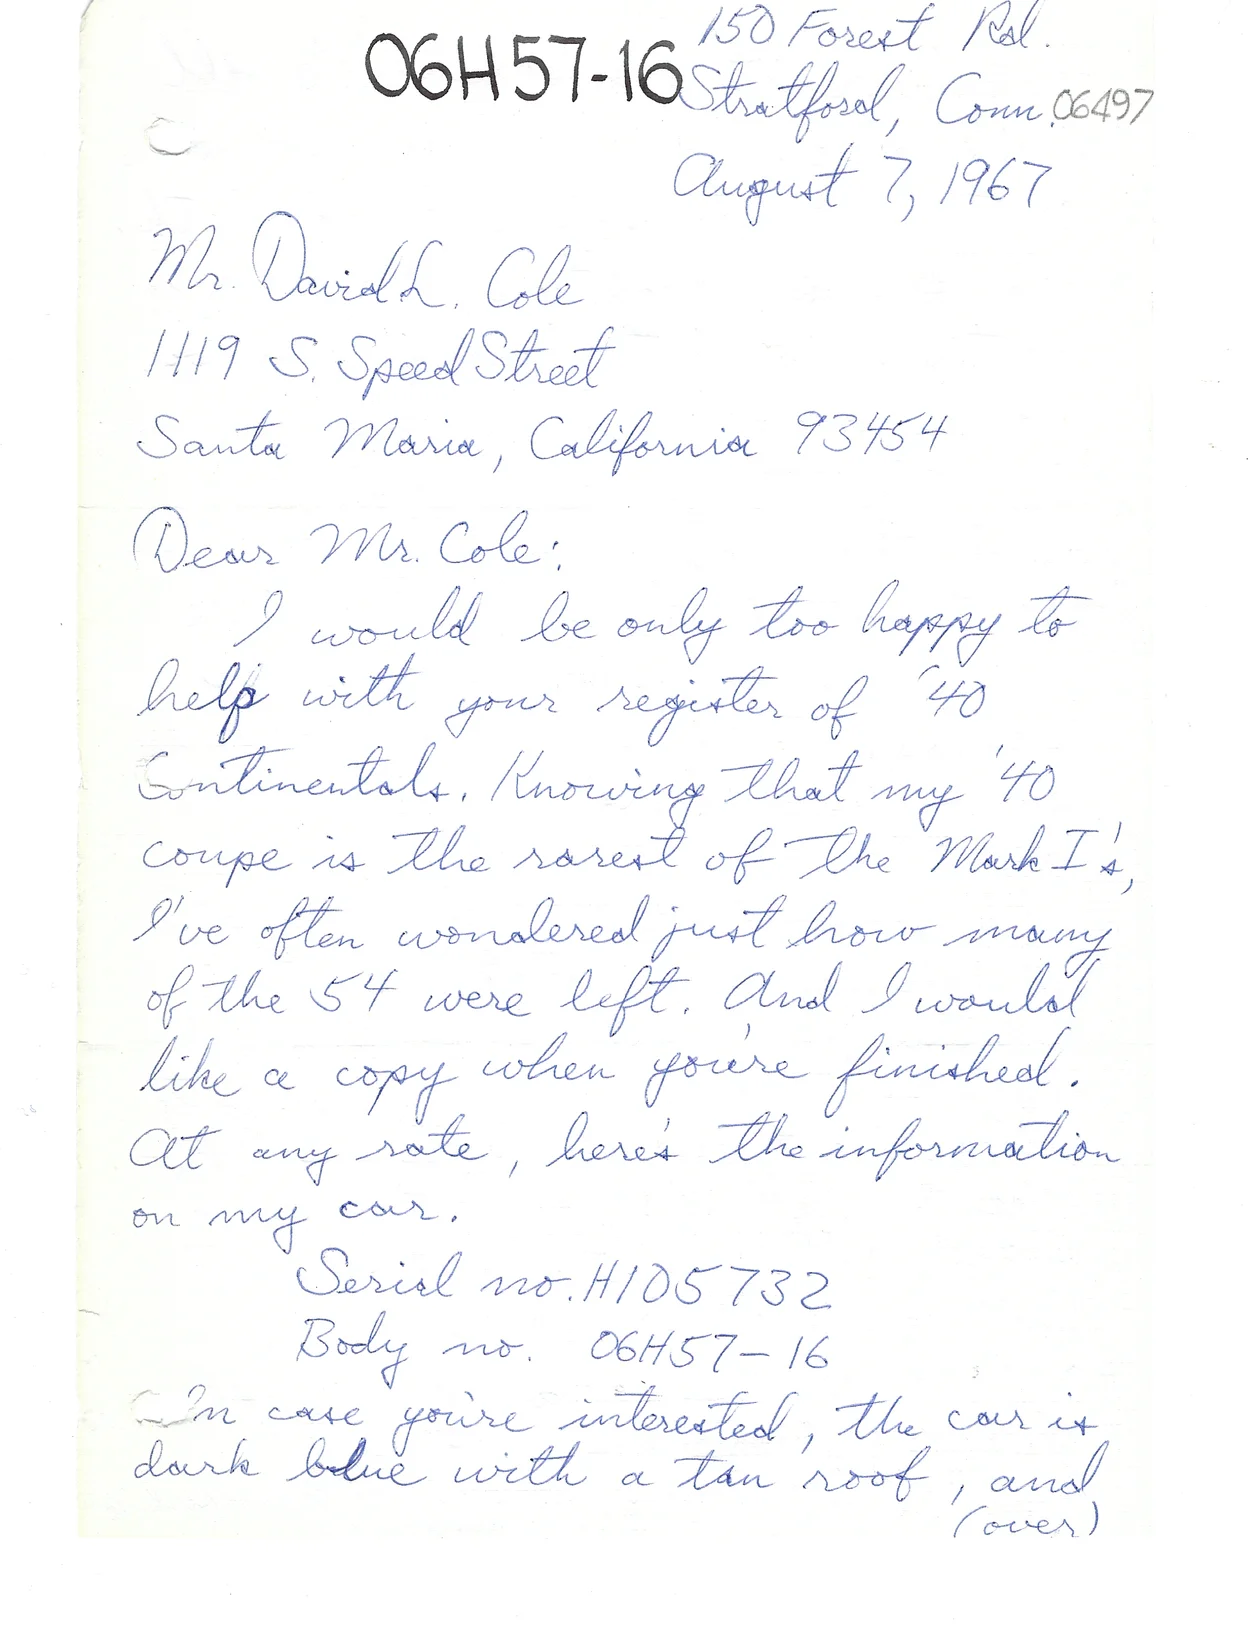 06H57-16
150 Forest Rd.
Stratford, Conn. 06497
August 7, 1967
Mr. David L. Cole
1119 S. Speed Street
Santa Maria, California 93454
Dear Mr. Cole:
I would be only too happy to
help with your register of '40
Continentals. Knowing that my '40
coupe is the rarest of the Mark I's,
I've often wondered just how many
of the 54 were left. And I would
like a copy when you're finished.
At any rate, here's the information
on my car.
Serial no. H105732
Body no. 06H57-16
In case you're interested, the car is
dark blue with a tan roof, and
(over)